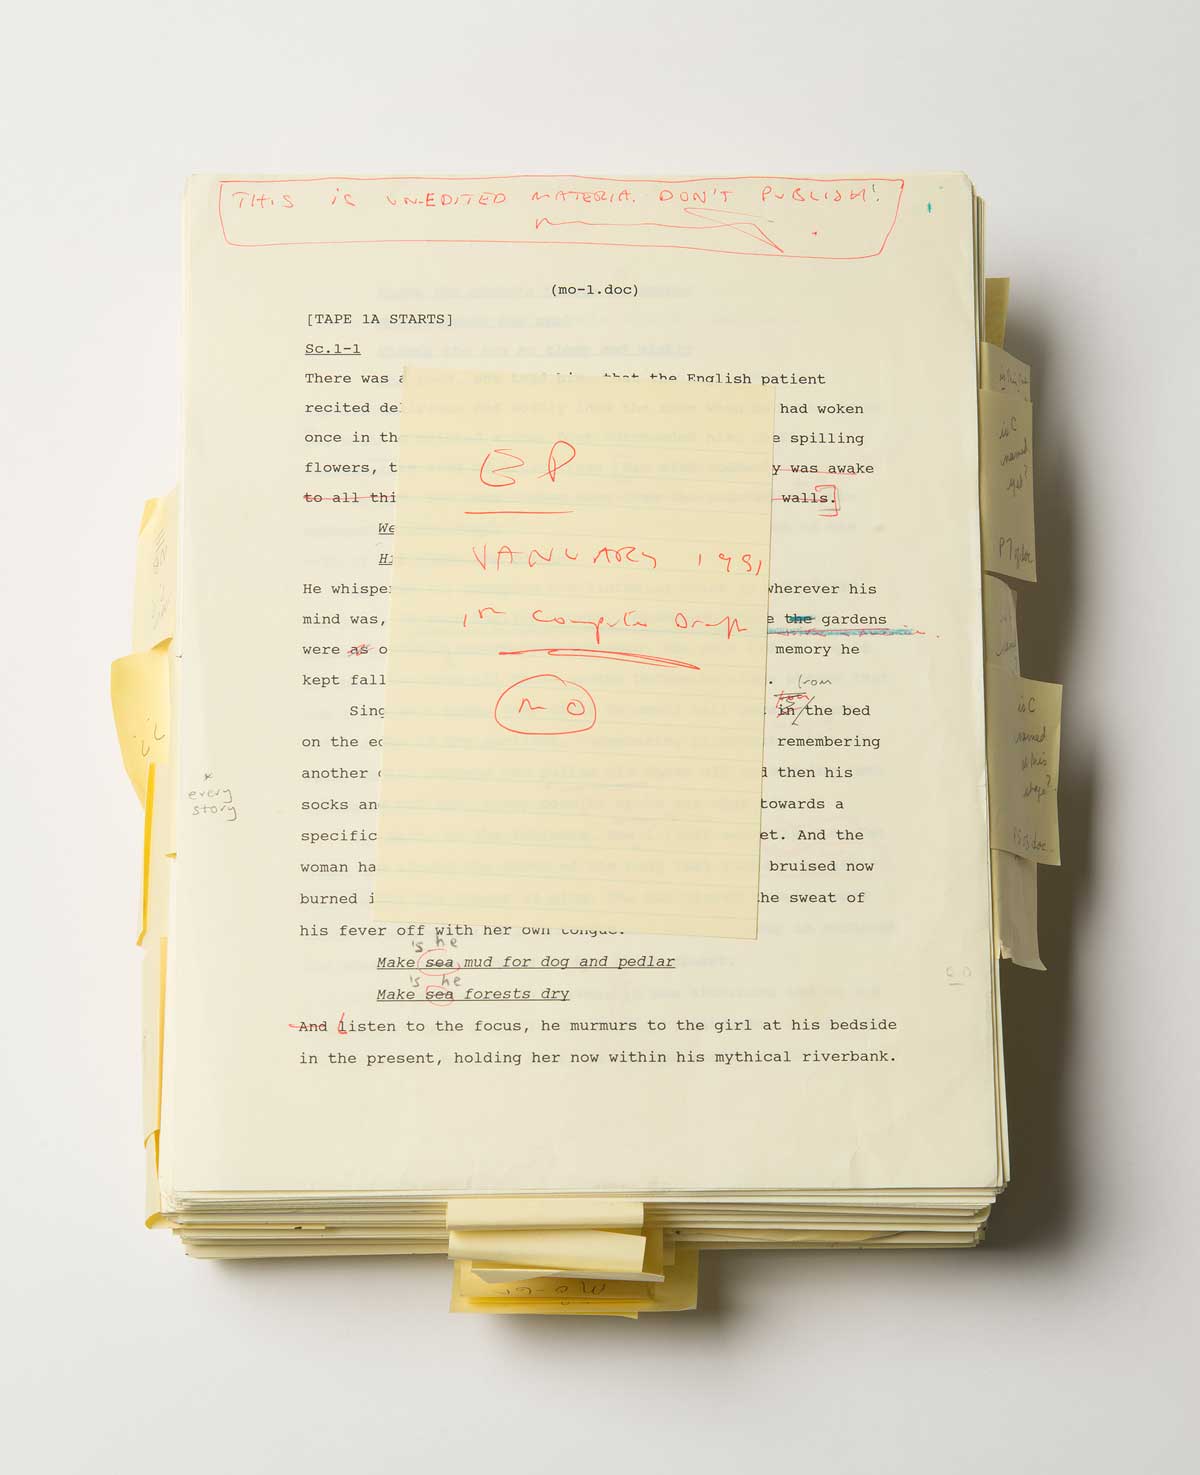 THIS IS UNEDITED MATERIAL. DON'T PUBLISH!
(mo-1.doc)
[TAPE 1A STARTS]
Sc.1-1
There was a that the English patient
recited de had woken
once in th e spilling
flowers, t y was awake
to all thi walls.]
We
Hi
He whispe wherever his
mind was, e the gardens
were as o memory he
kept fall . from
Sing in the bed
on the e remembering
another d then his
socks an towards a
specific et. And the
woman ha bruised now
burned i he sweat of
his fever off with her own tongue.
's he
Make sea mud for dog and pedlar
's he
Make sea forests dry
And listen to the focus, he murmurs to the girl at his bedside
in the present, holding her now within his mythical riverbank.
EP
JANUARY 1991
1st Computer Draft
MO
* every
story
is C
named
yet?
P 7 of doc
is C
named
at this
stage?